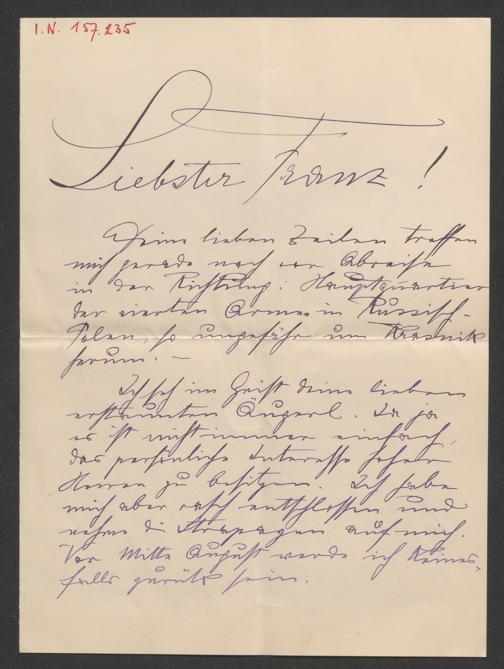 I.N. 157.235
Liebster Franz!
Deine lieben Zeilen treffen
mich gerade noch vor Abreise
in der Richtung: Hauptquartier
der vierten Armee in Russisch-
Polen, so ungefähr um Krasnik
herum. –
Ich seh im Geist deine lieben
erstaunten Äugerl. Ja ja
es ist nicht immer einfach,
das persönliche Interesse hoher
Herren zu besitzen. Ich habe
mich aber rasch entschlossen und
nehme die Strapazen auf mich.
Vor Mitte August werde ich keines-
falls zurück sein.